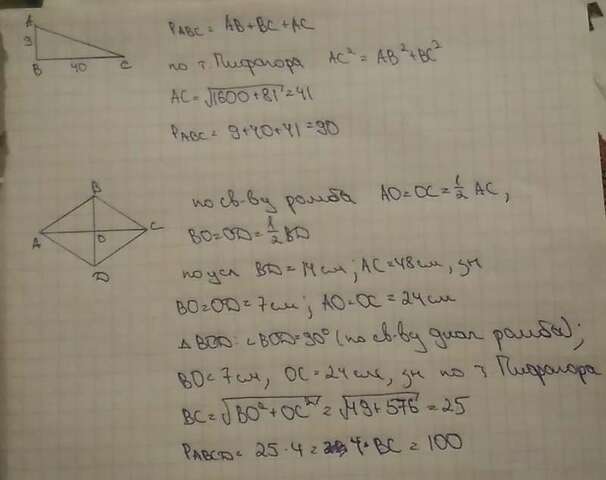 A
9
B 40 C
P_ABC = AB + BC + AC
по т. Пифагора AC² = AB² + BC²
AC = √1600 + 81 = 41
P_ABC = 9 + 40 + 41 = 90
B
A O C
D
по св-ву ромба AO = OC = 1/2 AC,
BO = OD = 1/2 BD
по усл BD = 14 см; AC = 48 см, зн
BO = OD = 7 см; AO = OC = 24 см
△ BOD: ∠BOD = 90° (по св-ву диаг ромба);
BO = 7 см, OC = 24 см, зн по т. Пифагора
BC = √BO² + OC² = √49 + 576 = 25
P_ABCD = 25 · 4 = 4 · BC = 100